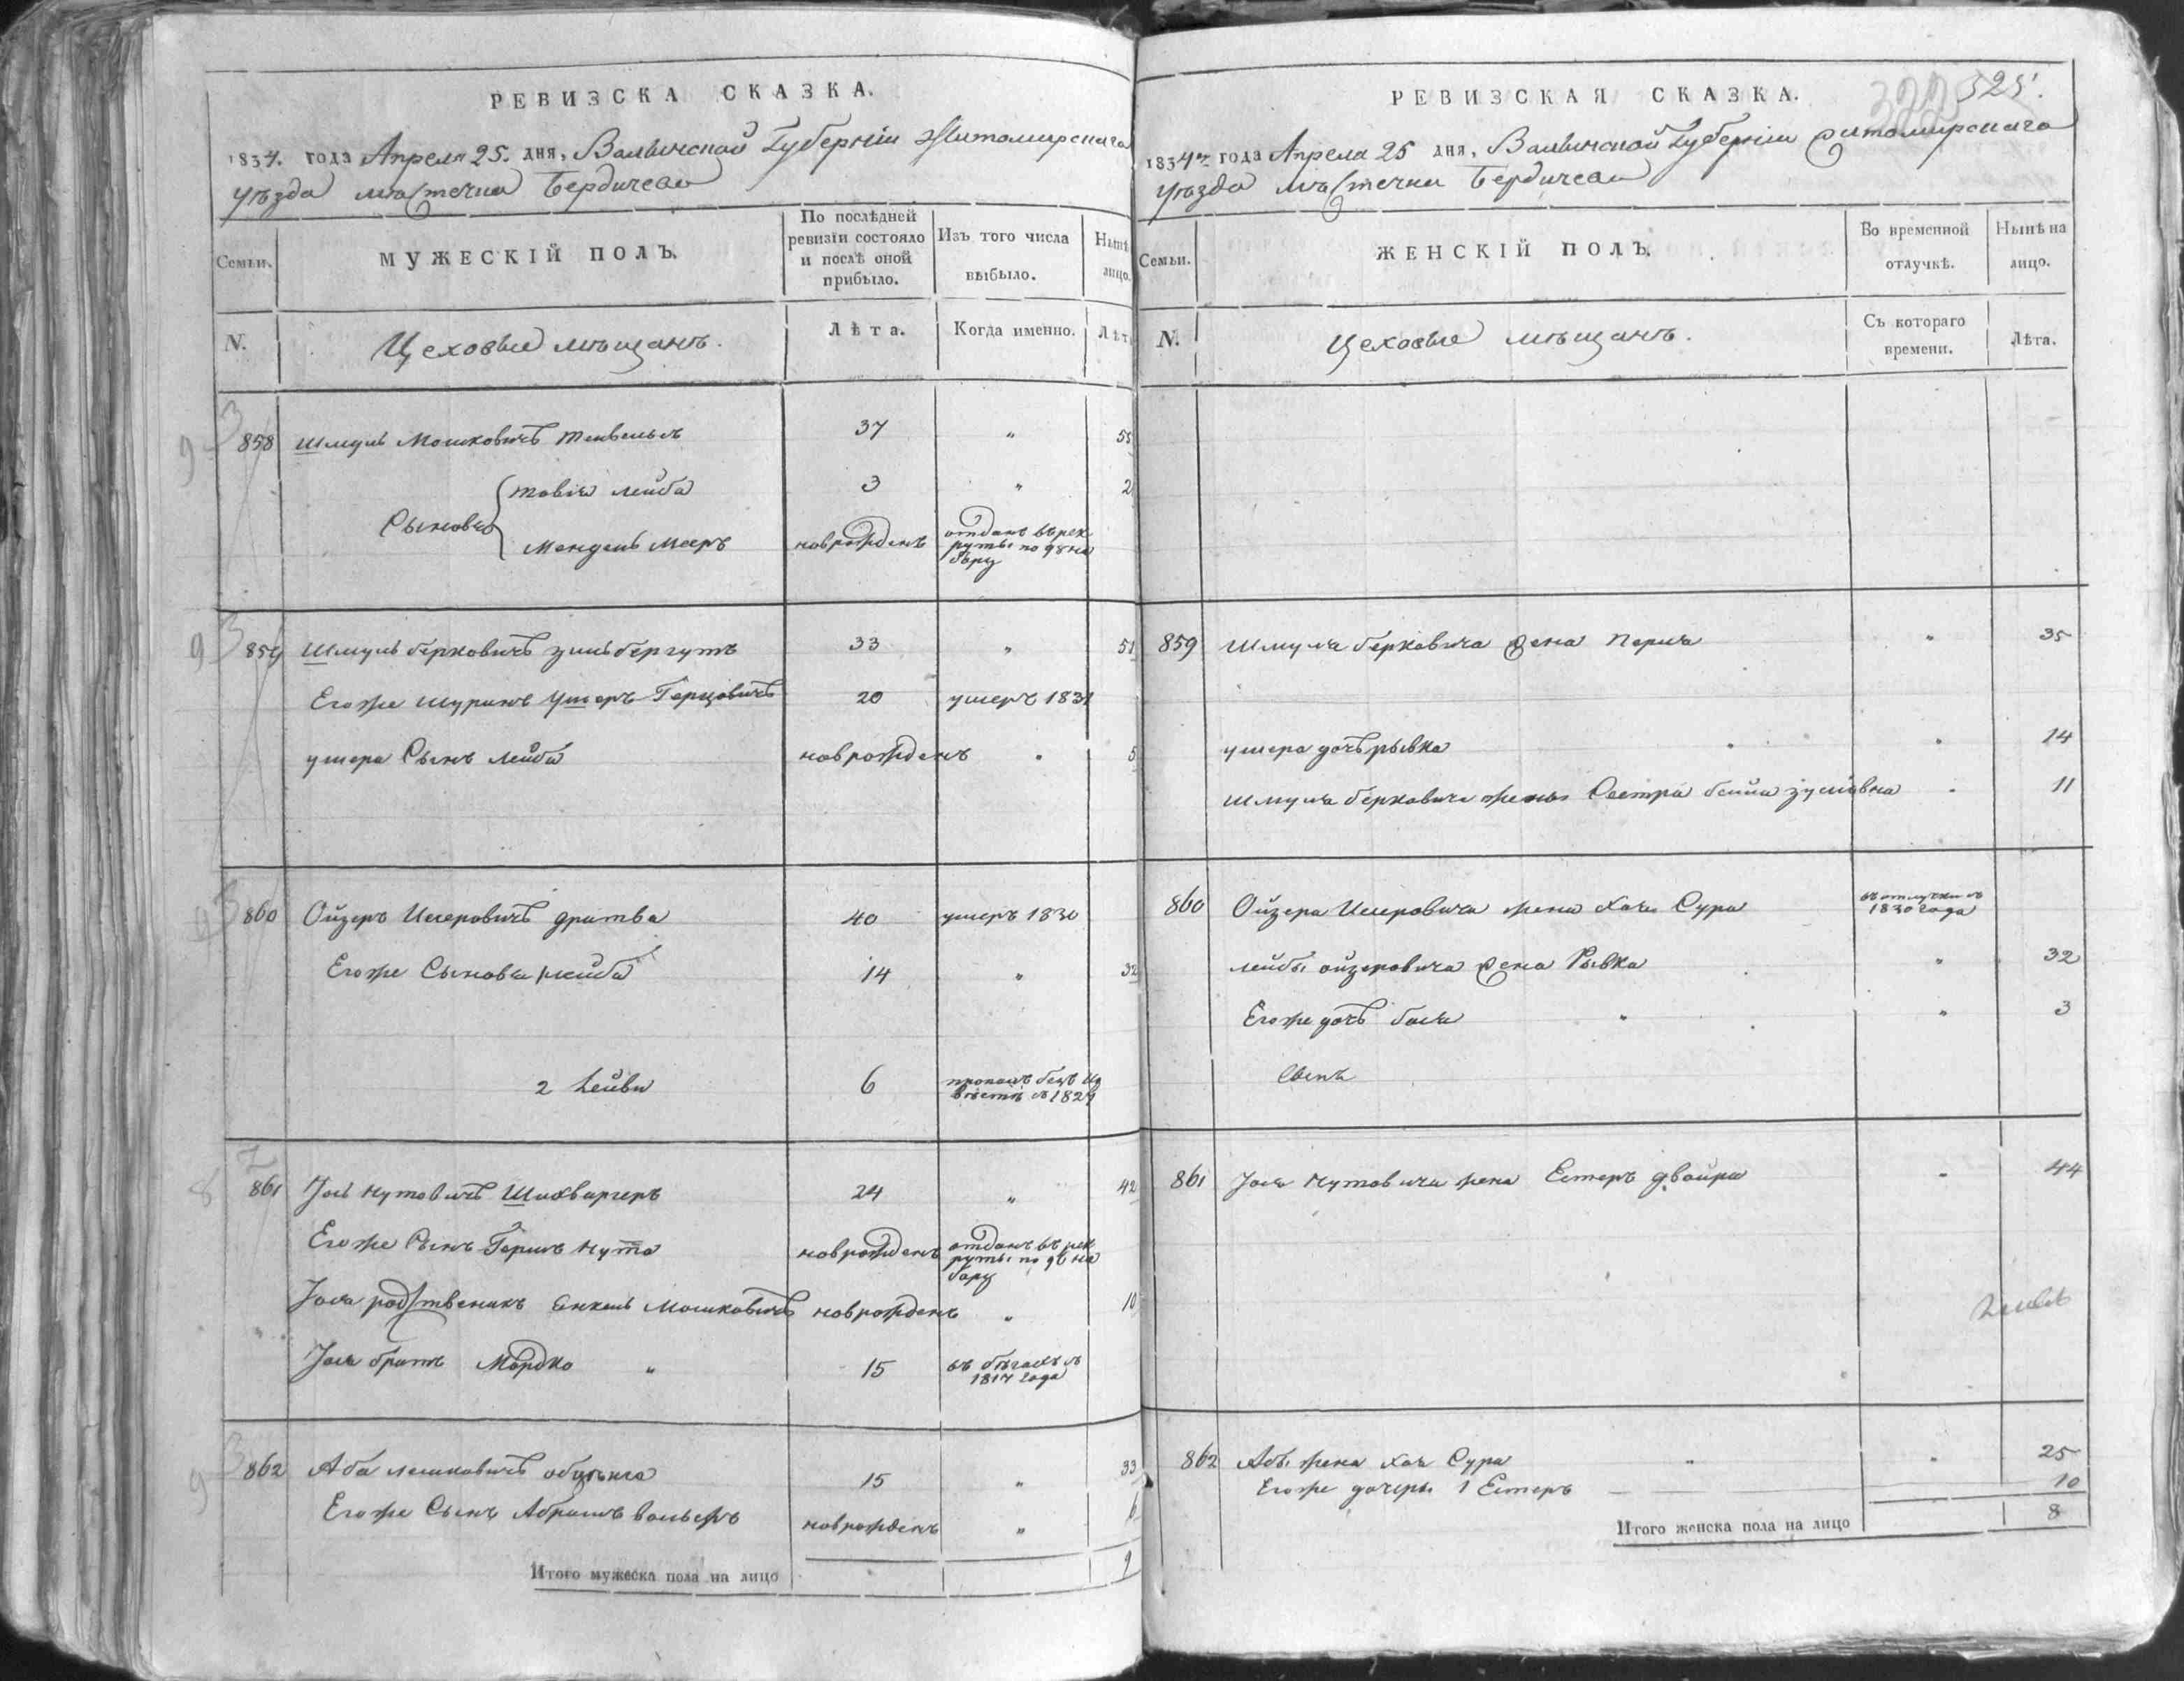 РЕВИЗСКА СКАЗКА.
1834. года Апреля 25. дня, Валынской Губерніи Житомирскаго
уѣзда мѣстечка Бердичева
Семьи.
МУЖЕСКІЙ ПОЛЪ.
По послѣдней ревизіи состояло и послѣ оной прибыло.
Изъ того числа выбыло.
Нынѣ лицо.
N.
Цеховые мѣщанъ.
Лѣта.
Когда именно.
Лѣт
858 Шмуль Мошковичъ 37 „ 55
Сыновья Товія Лейба 3 „ 2
Мендель Мееръ новрожденъ отданъ въ рекруты по 98 набору
859 Шмуль берковичъ зильбергутъ 33 „ 51
Егоже шуринъ Ушеръ Герцовичъ 20 умеръ 1831
ушера Сынъ лейба новрожденъ „ 5
860 Ойзеръ Исеровичъ дратва 40 умеръ 1830
Егоже Сыновья 1 лейба 14 „ 32
2 Лейви 6 пропалъ безъ извѣсти
861 Іось Нутовичъ 24 „ 42
Егоже Сынъ Гершъ Нута новрожденъ отданъ въ рекруты по набору
Іося родственикъ Енкель Мошковичъ новрожденъ „ 10
Іося братъ Мордко „ 15 въ бѣгахъ съ 1817 года
862 Аба лешковичъ 15 „ 33
Егоже Сынъ Абрамъ вольфъ новрожденъ „ 6
Итого мужеска пола на лицо 9
РЕВИЗСКАЯ СКАЗКА.
525.
1834го года Апреля 25 дня, Валынской Губерніи Житомирскаго
уѣзда мѣстечка Бердичева
Семьи.
ЖЕНСКІЙ ПОЛЪ.
Во временной отлучкѣ.
Нынѣ на лицо.
N.
Цеховые мѣщанъ.
Съ котораго времени.
Лѣта.
859 Шмуля берковича жена Перля „ 35
ушера дочь рывка „ „ 14
Шмуля берковича жены Сестра бейла „ 11
860 Ойзера Исеровича жена Хая Сура въ отлучки съ 1830 года
лейбы ойзеровича жена Рывка „ 32
Егоже дочь бася „ „ 3
861 Іося Нутовича жена Естеръ двойра „ 44
862 Абы жена Хая Сура „ „ 25
Егоже дочерь 1 Естеръ 10
Итого женска пола на лицо 8